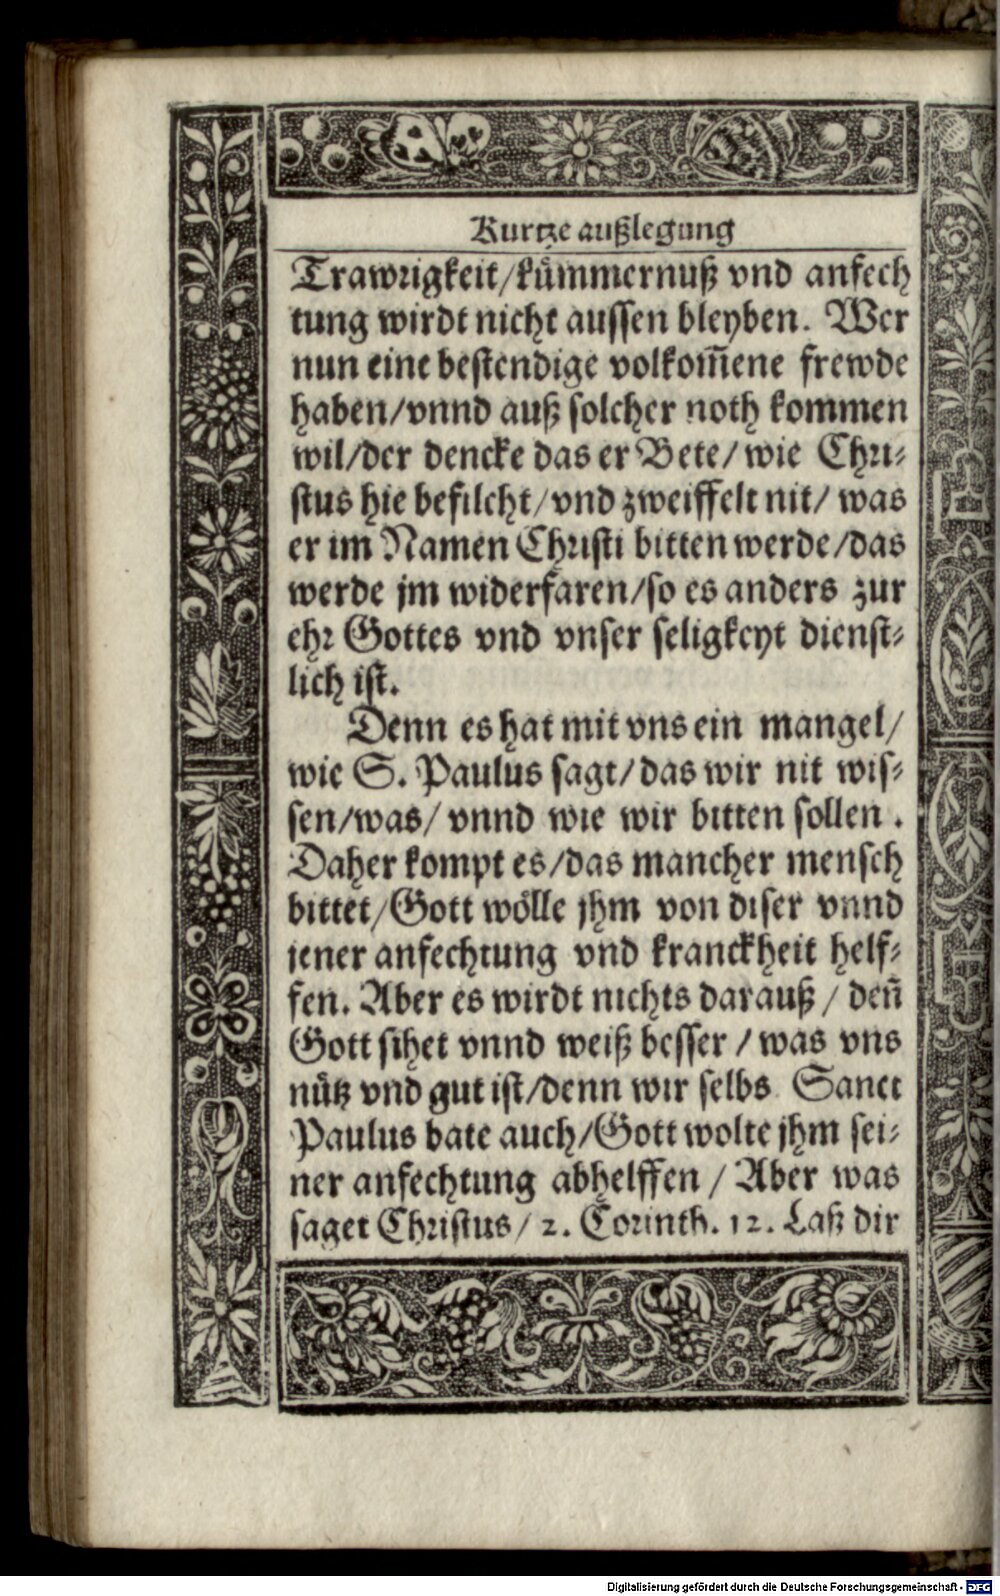 Kurtze außlegung
Trawrigkeit/kümmernuß vnd anfech
tung wirdt nicht aussen bleyben. Wer
nun eine bestendige volkom̃ene frewde
haben/vnnd auß solcher noth kommen
wil/der dencke das er Bete/wie Chri-
stus hie befilcht/vnd zweiffelt nit/was
er im Namen Christi bitten werde/das
werde jm widerfaren/so es anders zur
ehr Gottes vnd vnser seligkeyt dienst-
lich ist.
Denn es hat mit vns ein mangel/
wie S. Paulus sagt/das wir nit wis-
sen/was/vnnd wie wir bitten sollen.
Daher kompt es/das mancher mensch
bittet/Gott wölle jhm von diser vnnd
jener anfechtung vnd kranckheit helf-
fen. Aber es wirdt nichts darauß/den̄
Gott sihet vnnd weiß besser/was vns
nütz vnd gut ist/denn wir selbs Sanct
Paulus bate auch/Gott wolte jhm sei-
ner anfechtung abhelffen/Aber was
saget Christus/2. Corinth. 12. Laß dir
Digitalisierung gefördert durch die Deutsche Forschungsgemeinschaft - DFG